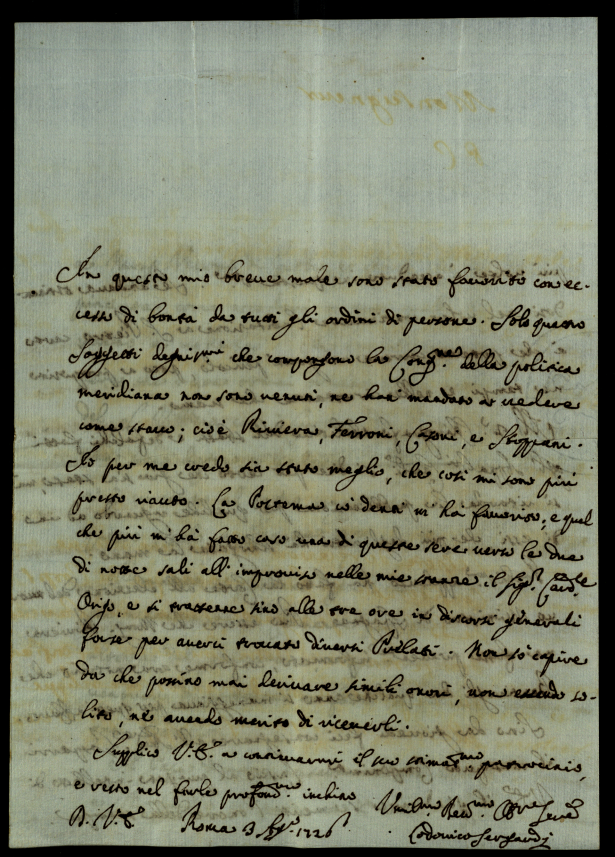 In questo mio breve male sono stato favorito con ec-
cessi di bontà da tutti gli ordini di persone. Solo quattro
Soggetti degniss.mi che compongono la Cong.ne della politica
meridiana non sono venuti, ne han mandato a vedere
come stavo; cioè Riviera, Ferroni, Casoni, e Stoppani.
Io per me credo sia stato meglio, che così mi sono più
presto riauto. La Postema a' denti m' ha favorito, e quel
che più m' ha fatto caso una di queste sere verso le due
di notte salì all' improviso nelle mie stanze il Sig.r Card.le
Origo, e si trattenne sino alle tre ore in discorsi generali
forse per averci trovato diversi Prelati. Non sò capire
da che possino mai derivare simili onori, non essendo so-
lito, nè avendo merito di riceverli.
Supplico V.E. a continuarmi il suo stimat.mo patrocinio,
e resto nel farle profond.mo inchino
D. V.E. Roma 3 1726
Umil.mo Dev.mo Obb.mo Serv.e
Lodovico Sergardi